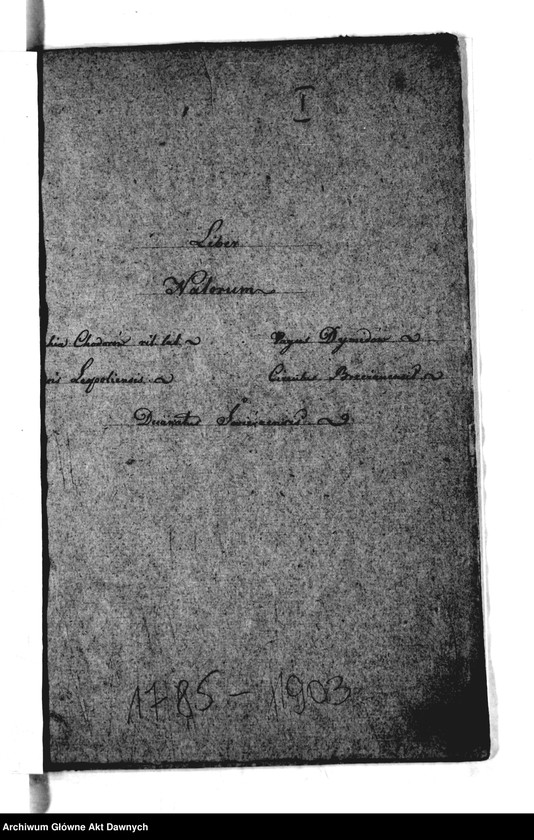 I
Liber
Natorum
Chodorów rit. lat. Pagus Dymidów
Leopoliensis Circulus
Decanatus
1785 - 1903
Archiwum Główne Akt Dawnych